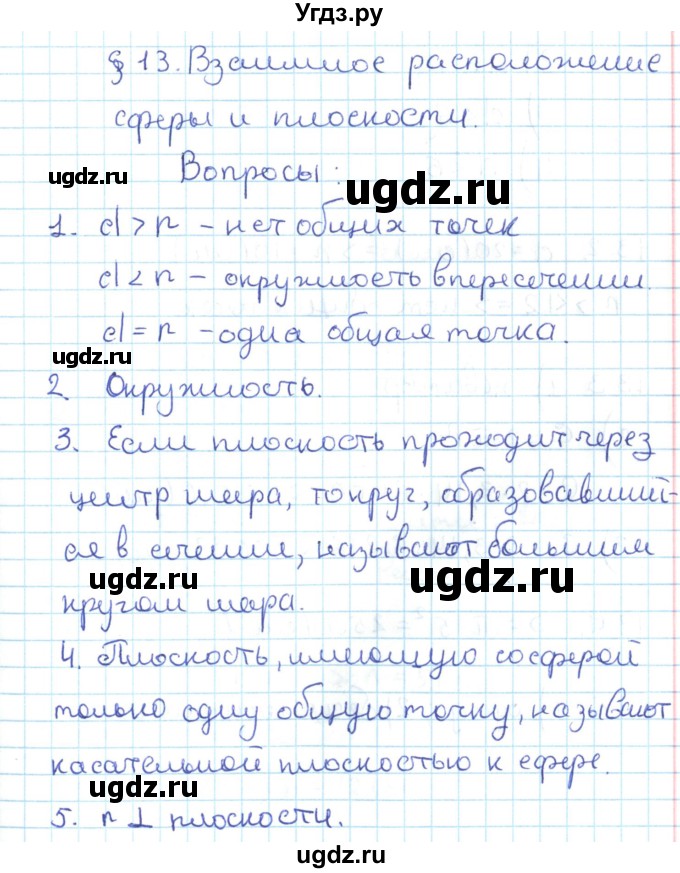 Угдз.ру
§ 13. Взаимное расположение
сферы и плоскости.
Вопросы:
ugdz.ru
ugdz.ru
1. d > r - нет общих точек
d < r - окружность в пересечении.
d = r - одна общая точка.
ugdz.ru
2. Окружность.
3. Если плоскость проходит через
центр шара, то круг, образовавший-
ся в сечении, называют большим
ugdz.ru
ugdz.ru
кругом шара.
4. Плоскость, имеющую со сферой
только одну общую точку, называют
касательной плоскостью к сфере.
ugdz.ru
5. r ⊥ плоскости.
ugdz.ru